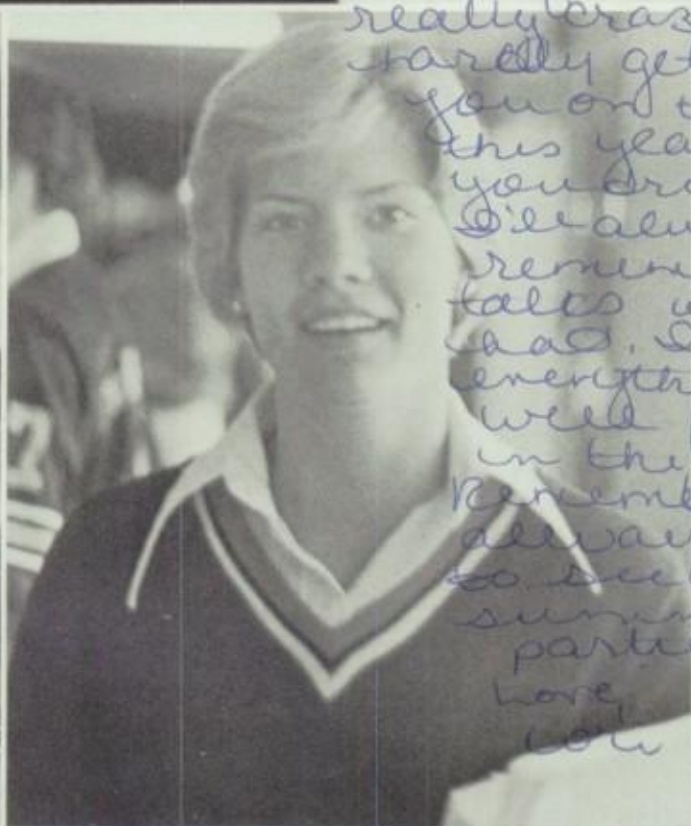 really craz
hardly get
you on t
this yea
you are
I'll alw
remem
talks w
had. I
everyth
well
in the
Rememb
always
to see
summ
parti
Love,
Lori